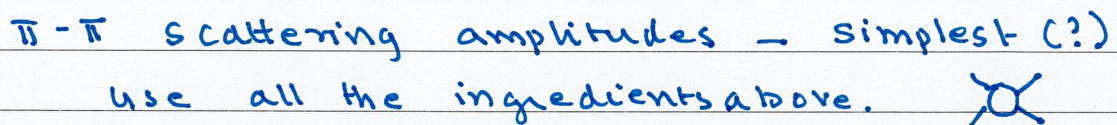 π-π scattering amplitudes - simplest (?)
use all the ingredients above.